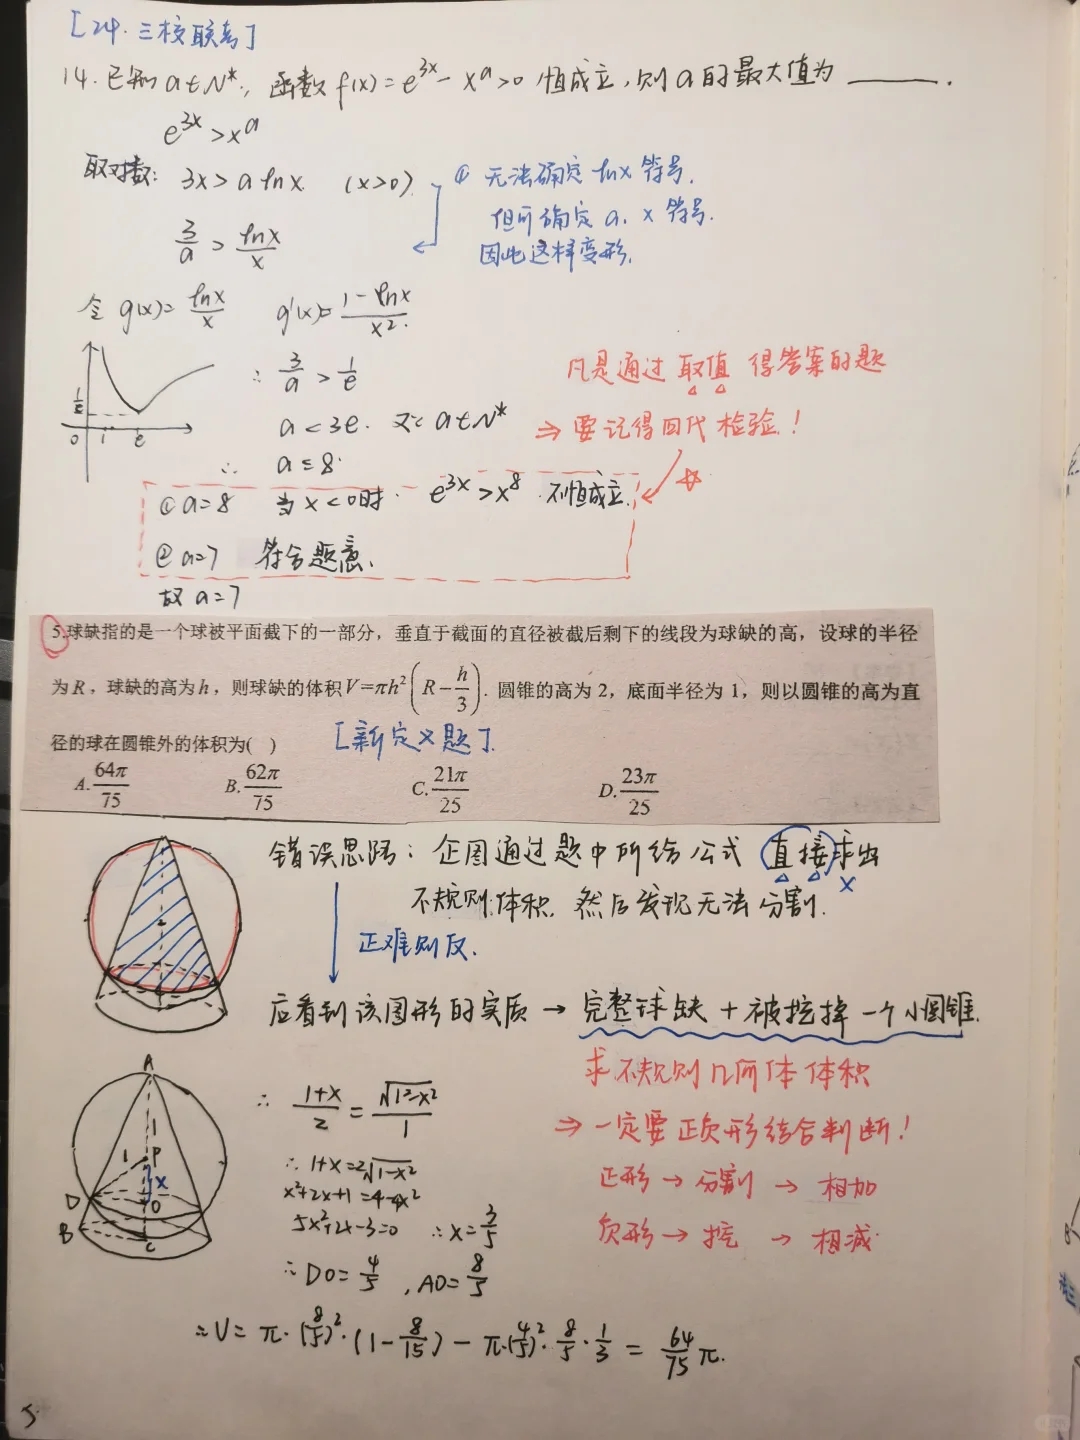 [24.三校联考]
14.已知a∈N*,函数f(x)=e^{3x}-x^a>0恒成立,则a的最大值为______.
e^{3x}>x^a
取对数: 3x>a lnx. (x>0)
① 无法确定lnx符号.
但可确定a, x符号.
因此这样变形.
3/a > lnx/x
令g(x)=lnx/x g'(x)=(1-lnx)/x².
1/e
0 1 e
∴ 3/a > 1/e
a<3e. 又∵a∈N*
∴ a≤8.
凡是通过取值得答案的题
⇒要记得回代检验!
①a=8 当x<0时. e^{3x}>x^8.不恒成立.
②a=7 符合题意.
故a=7
5.球缺指的是一个球被平面截下的一部分，垂直于截面的直径被截后剩下的线段为球缺的高，设球的半径
为R，球缺的高为h，则球缺的体积V=πh²(R-h/3). 圆锥的高为2，底面半径为1，则以圆锥的高为直
径的球在圆锥外的体积为( )
[新定义题].
A.64π/75 B.62π/75 C.21π/25 D.23π/25
错误思路: 企图通过题中所给公式直接求出
不规则体积. 然后发现无法分割.
正难则反.
应看到该图形的实质→完整球缺+被挖掉一个小圆锥.
求不规则几何体体积
⇒一定要正负形结合判断!
正形→分割→相加
负形→挖→相减.
2
A
1
1 P
x
D O
B C
∴ (1+x)/2=√(1²-x²)/1
∴1+x=2√(1-x²)
x²+2x+1=4-4x²
5x²+2x-3=0 ∴x=3/5
∴DO=4/5, AO=8/5
∴V=π·(8/5)²·(1-8/15)-π·(4/5)²·8/5·1/3=64/75π.
5.